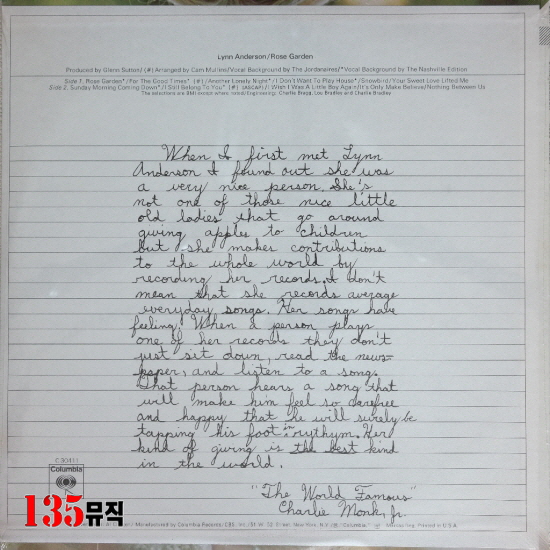 Lynn Anderson/Rose Garden
Produced by Glenn Sutton/(#) Arranged by Cam Mullins/Vocal Background by The Jordanaires/*Vocal Background by The Nashville Edition
Side 1. Rose Garden*/For The Good Times* (#)/Another Lonely Night*/I Don't Want To Play House*/Snowbird/Your Sweet Love Lifted Me
Side 2. Sunday Morning Coming Down*/I Still Belong To You* (#) (ASCAP)/I Wish I Was A Little Boy Again/It's Only Make Believe/Nothing Between Us
The selections are BMI except where noted/Engineering: Charlie Bragg, Lou Bradley and Charlie Bradley
When I first met Lynn
Anderson I found out she was
a very nice person. She's
not one of those nice little
old ladies that go around
giving apples to children
but she makes contributions
to the whole world by
recording her records. I don't
mean that she records average
everyday songs. Her songs have
feeling. When a person plays
one of her records they don't
just sit down, read the news-
paper, and listen to a song.
That person hears a song that
will make him feel so carefree
and happy that he will surely be
tapping his foot in rythym. Her
kind of giving is the best kind
in the world.
"The World Famous"
Charlie Monk, Jr.
C 30411
Columbia
135뮤직
Manufactured by Columbia Records/CBS, Inc./51 W. 52 Street, New York, N.Y./
Printed in U.S.A.